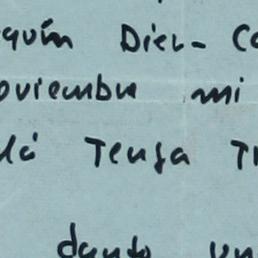 quín Diez- Co
oviembre mi
lá Tenga Tr
danto un